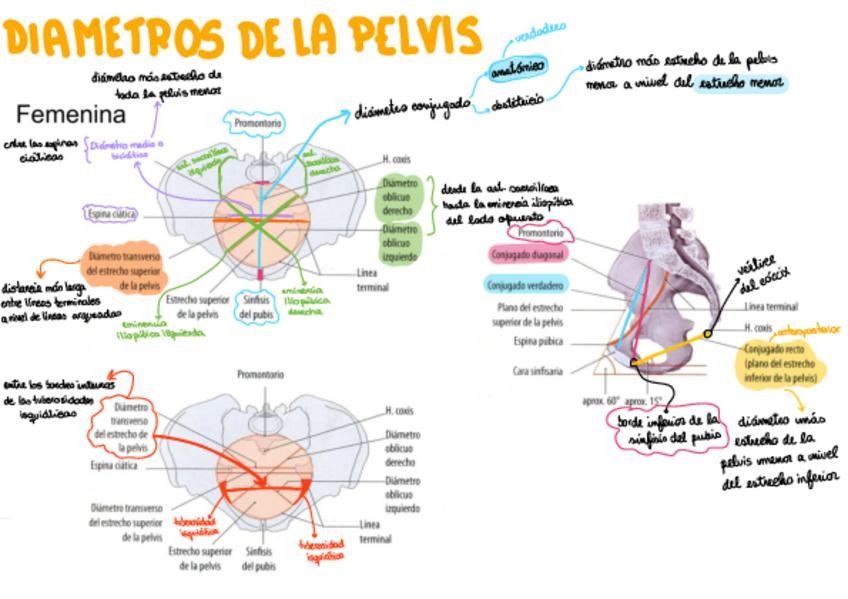 DIAMETROS DE LA PELVIS
verdadero
anatómico
diámetro conjugado
obstétricio
diámetro más estrecho de la pelvis
menor a nivel del estrecho menor
diámetro más estrecho de
toda la pelvis menor
Femenina
entre las espinas
ciáticas
Diámetro medio o
biciático
art. sacroilíaca
izquierda
Promontorio
art.
sacroilíaca
derecha
H. coxis
Diámetro
oblicuo
derecho
Diámetro
oblicuo
izquierdo
desde la art. sacroilíaca
hasta la eminencia iliopúbica
del lado opuesto
Espina ciática
Diámetro transverso
del estrecho superior
de la pelvis
distancia más larga
entre líneas terminales
a nivel de líneas arqueadas
Línea
terminal
Estrecho superior
de la pelvis
Sínfisis
del pubis
eminencia
iliopúbica
derecha
eminencia
iliopúbica izquierda
Promontorio
Conjugado diagonal
Conjugado verdadero
Plano del estrecho
superior de la pelvis
Espina púbica
Cara sinfisaria
vértice
del cóccix
Línea terminal
H. coxis
anteroposterior
Conjugado recto
(plano del estrecho
inferior de la pelvis)
aprox. 60°
aprox. 15°
borde inferior de la
sínfisis del pubis
diámetro más
estrecho de la
pelvis menor a nivel
del estrecho inferior
entre los bordes internos
de las tuberosidades
isquiáticas
Promontorio
Diámetro
transverso
del estrecho de
la pelvis
H. coxis
Diámetro
oblicuo
derecho
Espina ciática
Diámetro
oblicuo
izquierdo
Diámetro transverso
del estrecho superior
de la pelvis
tuberosidad
isquiática
Línea
terminal
Estrecho superior
de la pelvis
Sínfisis
del pubis
tuberosidad
isquiática